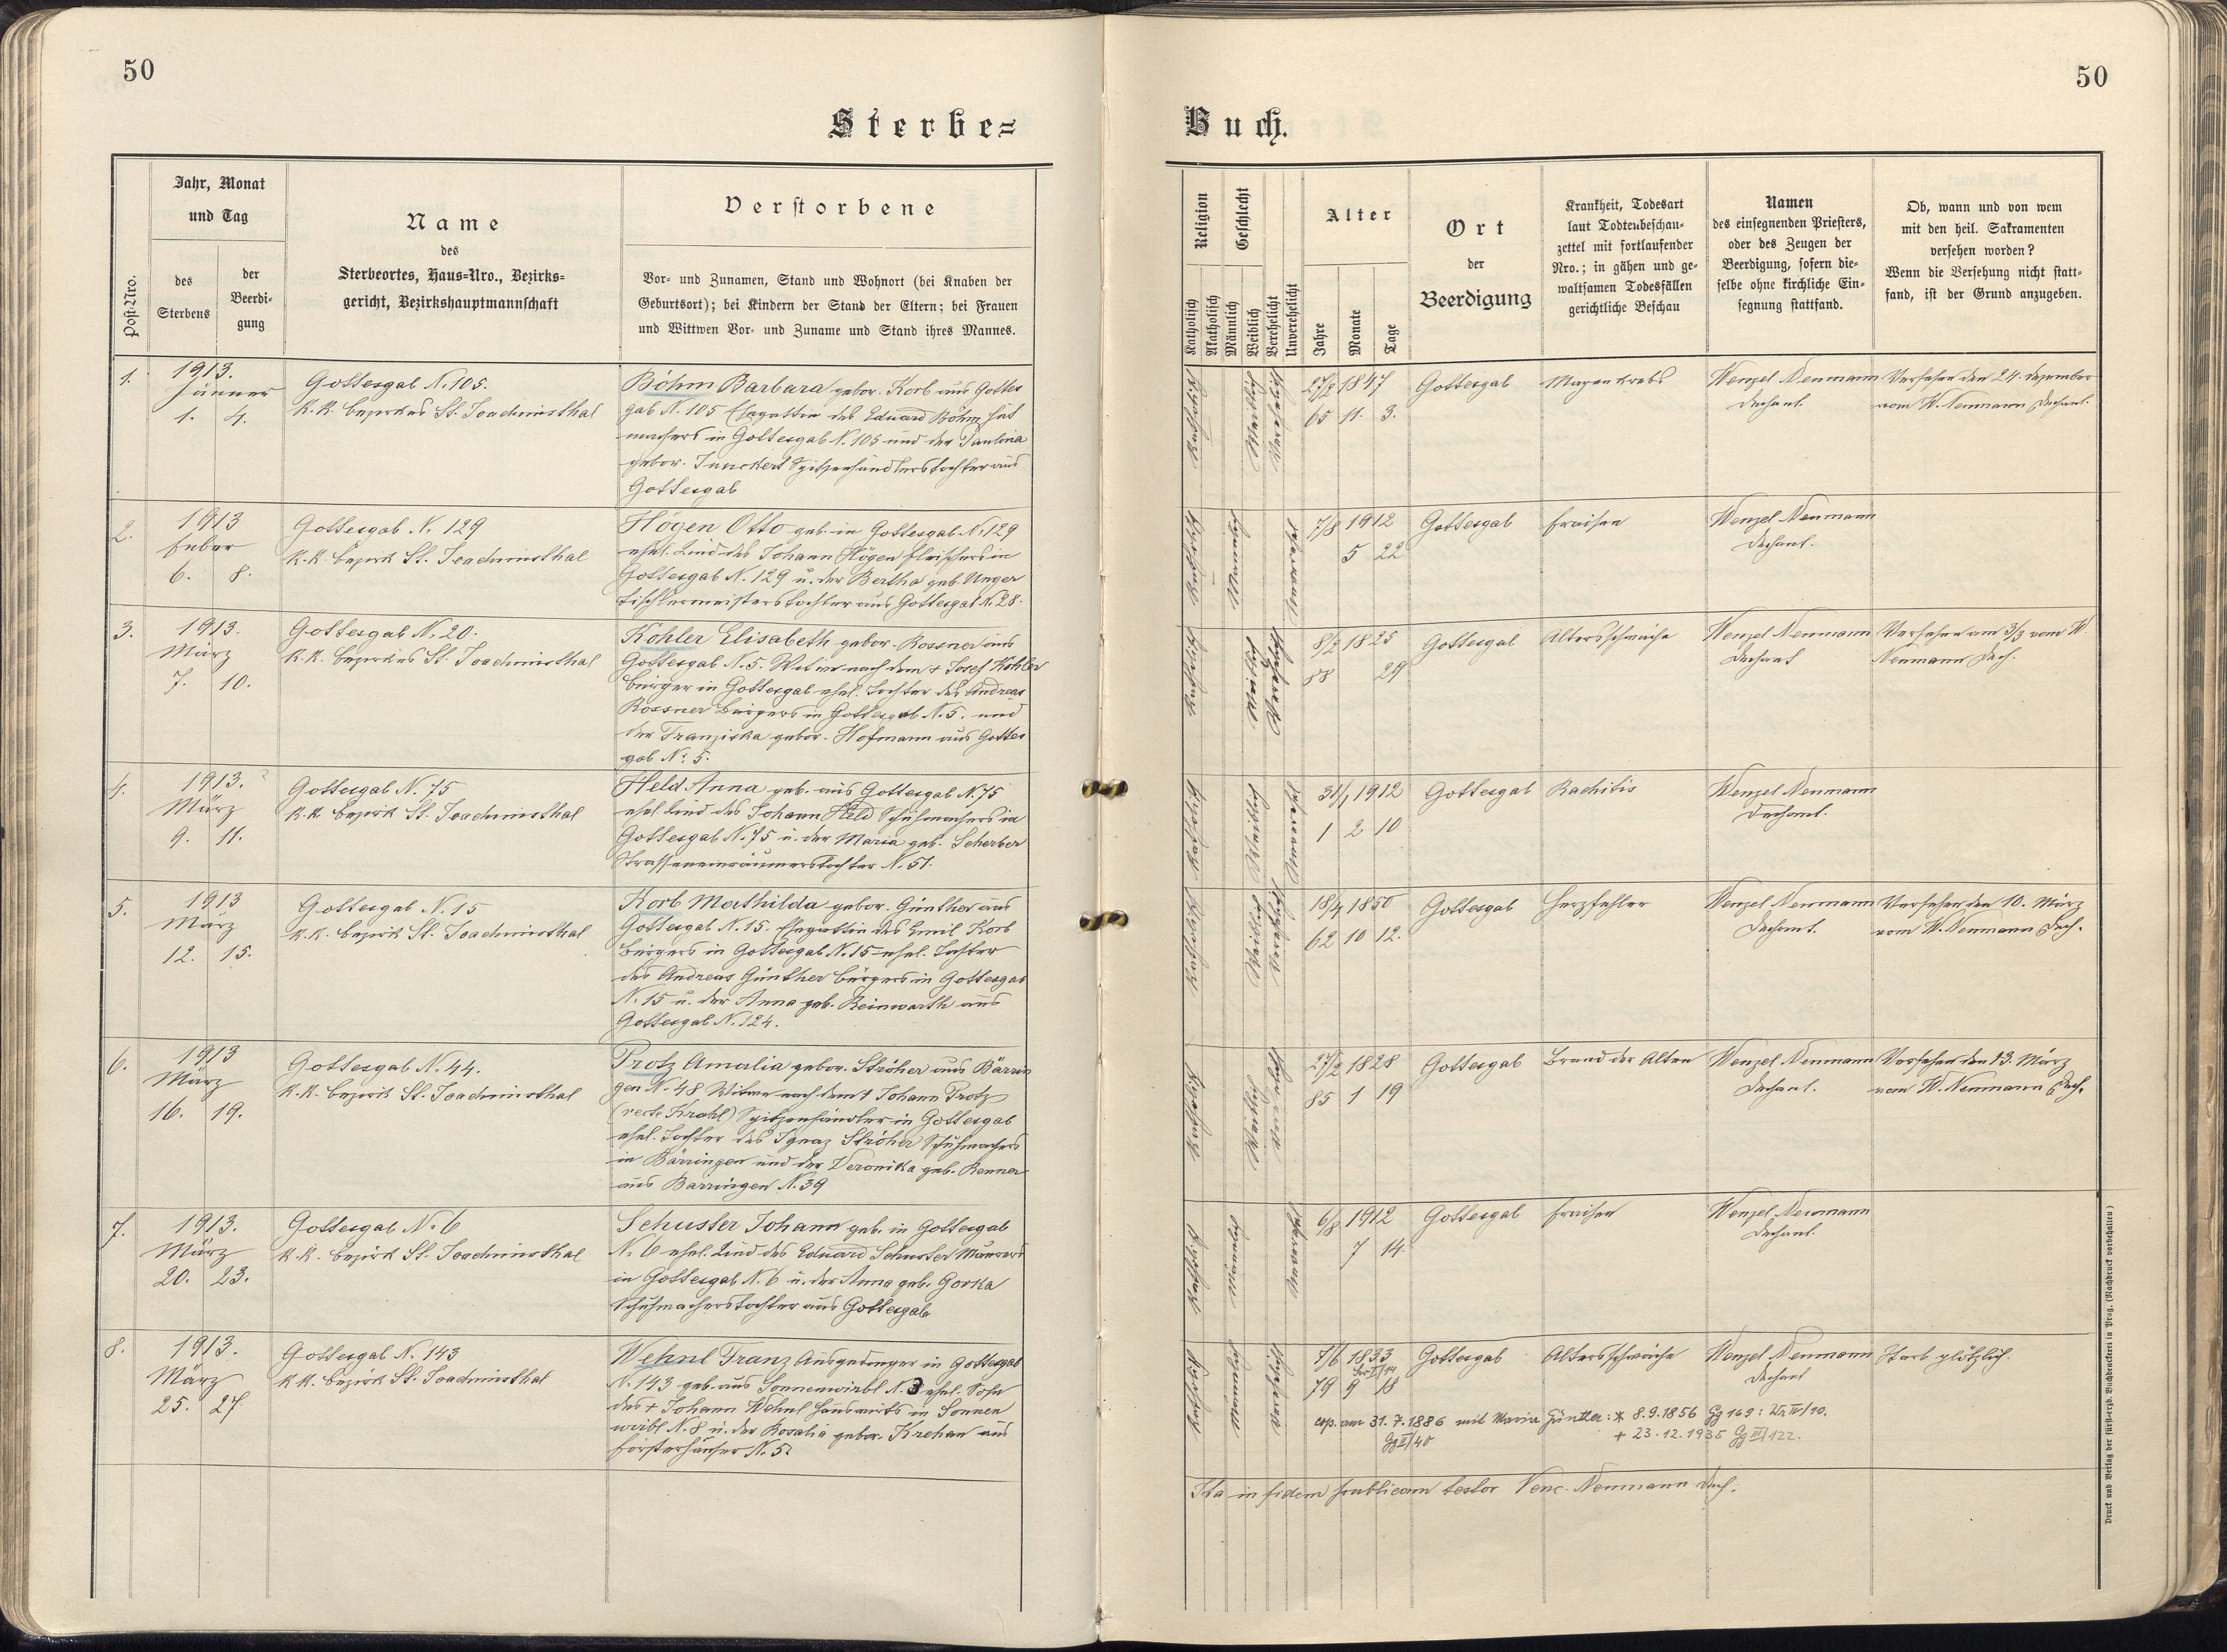 50
50
Sterbe=
Buch.
Post-Nro.
Jahr, Monat
und Tag
des
Sterbens
der
Beerdi-
gung
Name
des
Sterbeortes, Haus-Nro., Bezirks-
gericht, Bezirkshauptmannschaft
Verstorbene
Vor- und Zunamen, Stand und Wohnort (bei Knaben der
Geburtsort); bei Kindern der Stand der Eltern; bei Frauen
und Wittwen Vor- und Zuname und Stand ihres Mannes.
Religion
Katholisch
Akatholisch
Geschlecht
Männlich
Weiblich
Verehelicht
Unverehelicht
Alter
Jahre
Monate
Tage
Ort
der
Beerdigung
Krankheit, Todesart
laut Todtenbeschau-
zettel mit fortlaufender
Nro.; in gähen und ge-
waltsamen Todesfällen
gerichtliche Beschau
Namen
des einsegnenden Priesters,
oder des Zeugen der
Beerdigung, sofern die-
selbe ohne kirchliche Ein-
segnung stattfand.
Ob, wann und von wem
mit den heil. Sakramenten
versehen worden?
Wenn die Versehung nicht statt-
fand, ist der Grund anzugeben.
1.
1913.
Jänner
1. 4.
Gottesgab N. 105.
K.K. Bezirkes St. Joachimsthal
Böhm Barbara gebor. Korb aus Gottes
gab N. 105 Ehegattin des Eduard Böhm Hut
machers in Gottesgab N. 105 und der Paulina
gebor. Spitzenhändlerstochter aus
Gottesgab
Katholisch
Weiblich
Verehelicht
27/1 1847
65 11. 3.
Gottesgab
Magenkrebs
Wenzel Neumann
Dechant.
Versehen den 24. Dezember
vom W. Neumann Dechant.
2.
1913
Feber
6. 8.
Gottesgab N. 129
K.K. Bezirk St. Joachimsthal
Högen Otto geb. in Gottesgab N. 129
ehel. Kind des Johann Högen Fleischers in
Gottesgab N. 129 u. der Bertha geb. Unger
Tischlermeisterstochter aus Gottesgab N. 28.
Katholisch
Männlich
Unverehel.
7/8 1912
5 22
Gottesgab
Fraisen
Wenzel Neumann
Dechant.
3.
1913.
März
7. 10.
Gottesgab N. 20.
K.K. Bezirkes St. Joachimsthal
Köhler Elisabeth gebor. Rossner aus
Gottesgab N. 5. Witwe nach dem + Josef Köhler
Bürger in Gottesgab ehel. Tochter des Andreas
Rossner Bürgers in Gottesgab N. 5. und
der Franziska gebor. Hofmann aus Gottes
gab N. 5.
Katholisch
Weiblich
Verehelicht
8/2 1825
88 29
Gottesgab
Altersschwäche
Wenzel Neumann
Dechant
Versehen am 3/3 vom W.
Neumann Dech.
4.
1913.
März
9. 11.
Gottesgab N. 75
K.K. Bezirk St. Joachimsthal
Held Anna geb. aus Gottesgab N. 75
ehel. Kind des Johann Held Schuhmachers in
Gottesgab N. 75 u. der Maria geb. Scherber
Strasseneinräumerstochter N. 51.
Katholisch
Weiblich
Unverehel.
31/1 1912
1 2 10
Gottesgab
Rachitis
Wenzel Neumann
Dechant.
5.
1913
März
12. 15.
Gottesgab N. 15
K.K. Bezirk St. Joachimsthal
Korb Mathilda gebor. Günther aus
Gottesgab N. 15. Ehegattin des Emil Korb
Bürgers in Gottesgab N. 15 ehel. Tochter
des Andreas Günther Bürgers in Gottesgab
N. 15 u. der Anna geb. Reinwarth aus
Gottesgab N. 124.
Katholisch
Weiblich
Verehelicht
18/4 1850
62 10 12.
Gottesgab
Herzfehler
Wenzel Neumann
Dechant.
Versehen den 10. März
vom W. Neumann Dech.
6.
1913
März
16. 19.
Gottesgab N. 44.
K.K. Bezirk St. Joachimsthal
Protz Amalia gebor. Ströher aus Bärrin
gen N. 48 Witwe nach dem † Johann Protz
(recte Krahl) Spitzenhändler in Gottesgab
ehel. Tochter des Ignaz Ströher Schuhmachers
in Bärringen und der Veronika geb. Renner
aus Bärringen N. 39
Katholisch
Weiblich
27/2 1828
85 1 19
Gottesgab
Brand der Alten
Wenzel Neumann
Dechant.
Versehen den 13. März
vom W. Neumann Dech.
7.
1913.
März
20. 23.
Gottesgab N. 6
K.K. Bezirk St. Joachimsthal
Schuster Johann geb. in Gottesgab
N. 6 ehel. Kind des Eduard Schuster Maurers
in Gottesgab N. 6 u. der Anna geb. Gorka
Schuhmacherstochter aus Gottesgab
Katholisch
Männlich
Unverehel.
6/8 1912
7 14.
Gottesgab
Fraisen
Wenzel Neumann
Dechant.
8.
1913.
März
25. 27.
Gottesgab N. 143
K.K. Bezirk St. Joachimsthal
Wehnl Franz Ausgedinger in Gottesgab
N. 143 geb. aus Sonnenwirbl N. 3 ehel. Sohn
des + Johann Wehnl Hauswirts in Sonnen
wirbl N. 8 u. der Rosalia gebor. Krehan aus
Försterhäuser N. 5.
Katholisch
Männlich
Verehelicht
7/6 1833
79 9 18
Gottesgab
Altersschwäche
Wenzel Neumann
Dechant
Starb plötzlich.
cop. am 31.7.1886 mit Maria Günther: * 8.9.1856 Gg 169: IV/10.
Gg II/40
+ 23.12.1935 Gg III/122.
Ita in fidem publicam testor Venc. Neumann Dech.
Druck und Verlag der fürsterzb. Buchdruckerei in Prag. (Nachdruck vorbehalten)